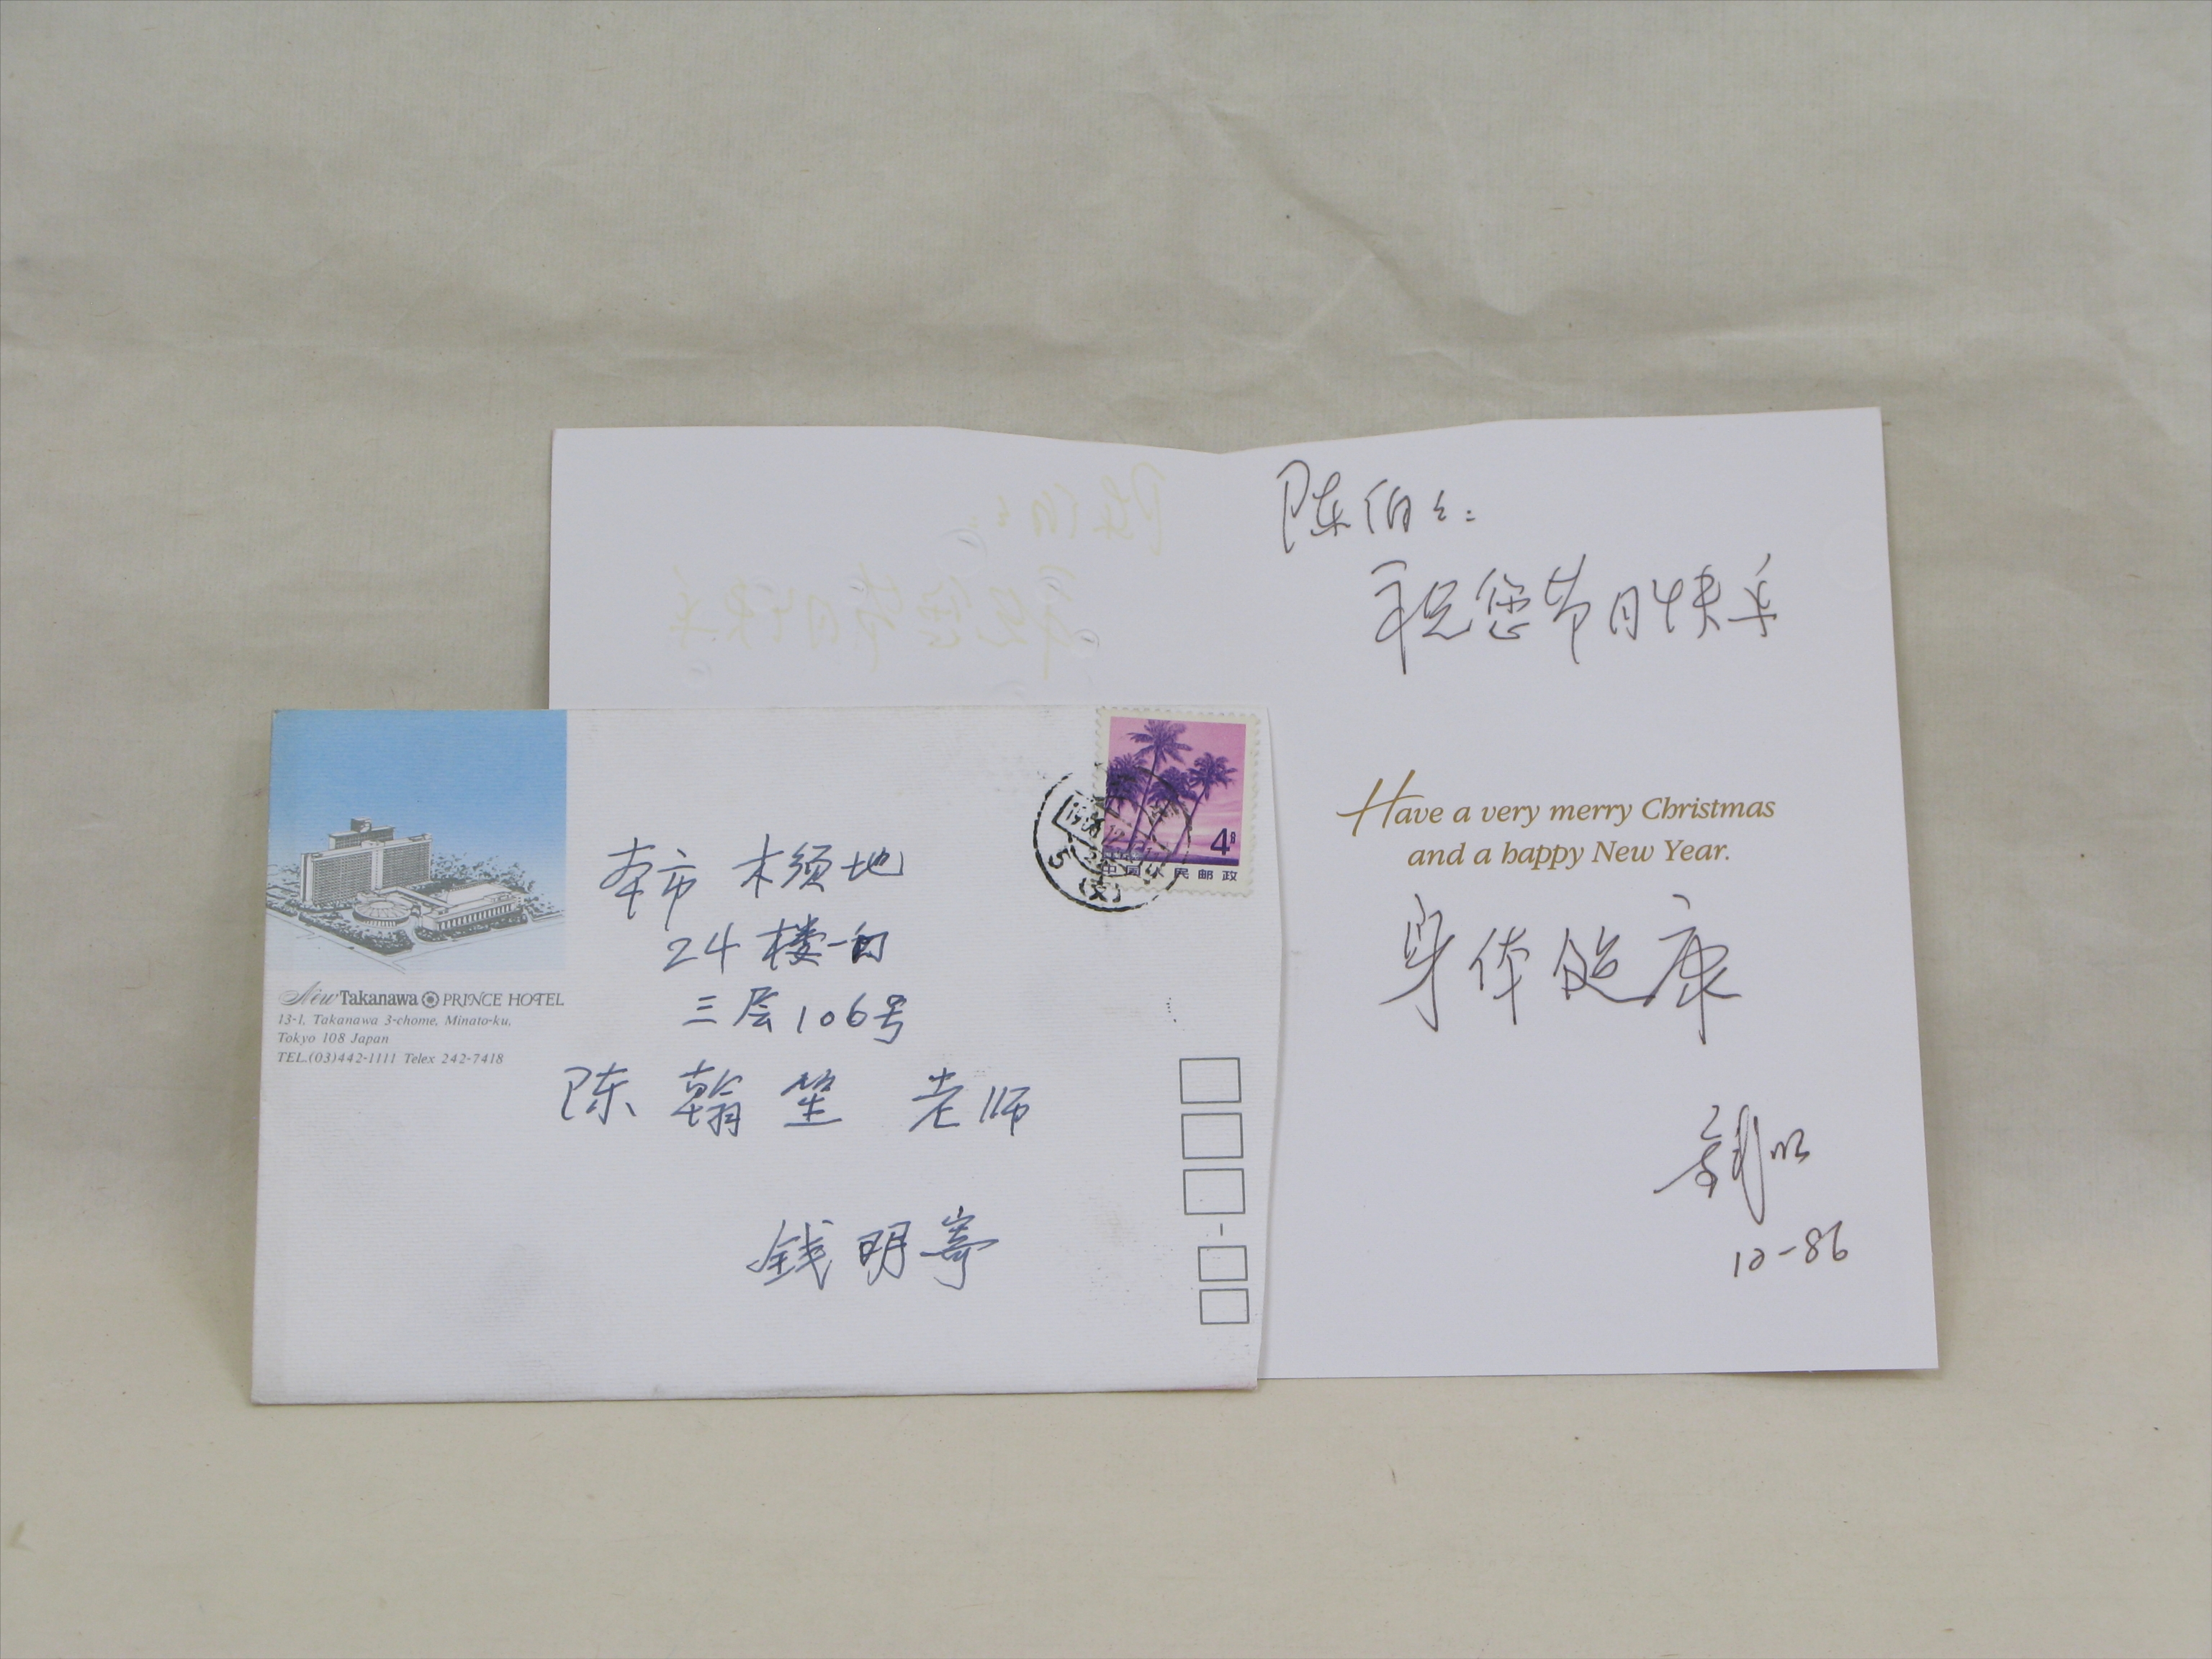 New Takanawa PRINCE HOTEL
13-1, Takanawa 3-chome, Minato-ku,
Tokyo 108 Japan
TEL.(03)442-1111 Telex 242-7418
4分
中国人民邮政
5 (支)
本市 木须地
24楼一门
三层106号
陈翰笙 老师
钱明寄
陈伯伯:
祝您节日快乐
Have a very merry Christmas
and a happy New Year.
身体健康
钱明
12-86